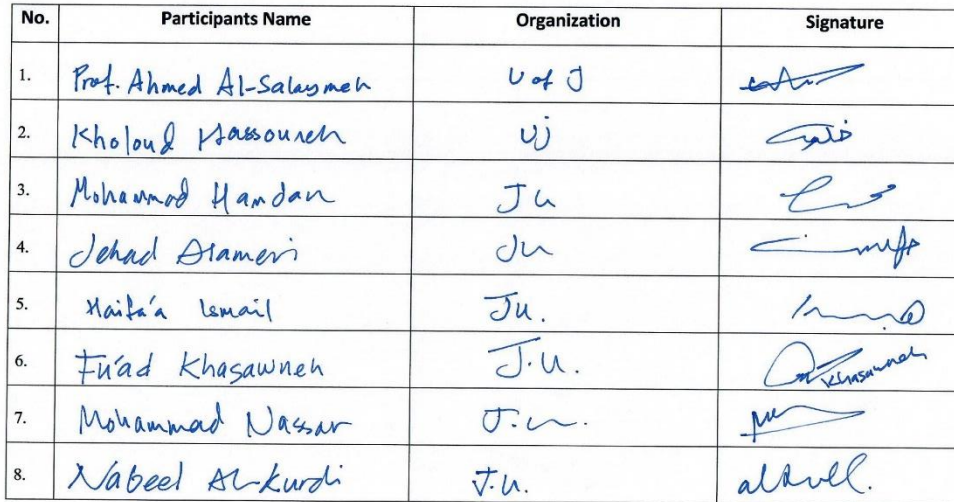 No. Participants Name Organization Signature
1. Prof. Ahmed Al-Salaymeh U of J
2. Kholoud Hassouneh UJ
3. Mohammad Hamdan JU
4. Jehad Alameri JU
5. Haifa'a Ismail JU.
6. Fu'ad Khasawneh J.U. Khasawneh
7. Mohammad Nassar J.U.
8. Nabeel Al-Kurdi J.U.